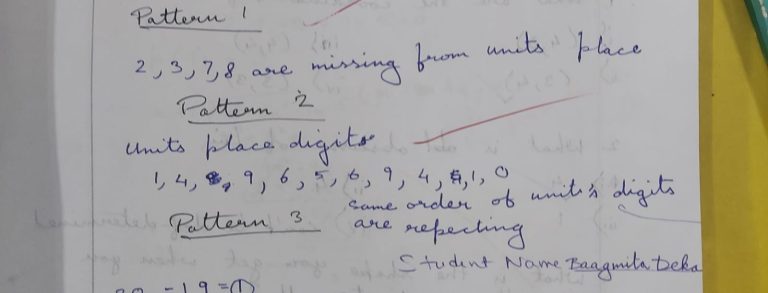 Pattern 1
2, 3, 7, 8 are missing from units place
Pattern 2
units place digits
1, 4, 9, 6, 5, 6, 9, 4, 1, 0
same order of units digits
Pattern 3 are repecting
Student Name Baagmita Deka
- 19 = 1